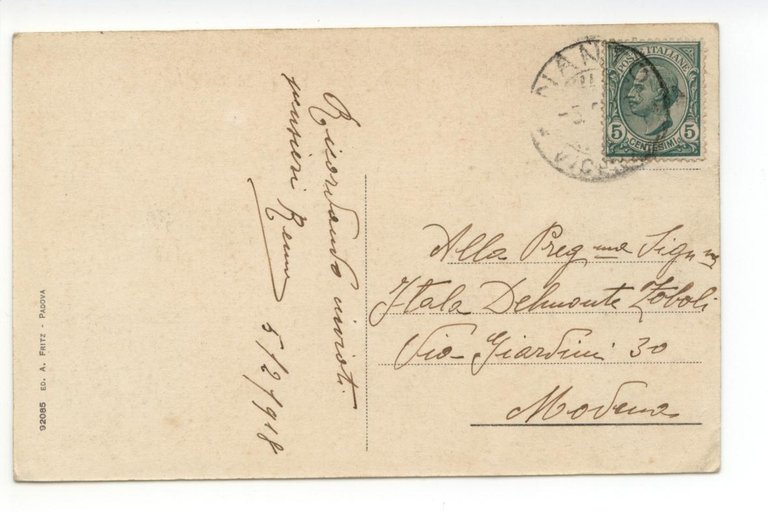 Ricordando invioti
pensieri
5/2/918
POSTE ITALIANE
5 5
CENTESIMI
Alla Preg ma Sig ra
Itala Delmonte Zoboli
Via Giardini 30
Modena
92085 ED. A. FRITZ - PADOVA